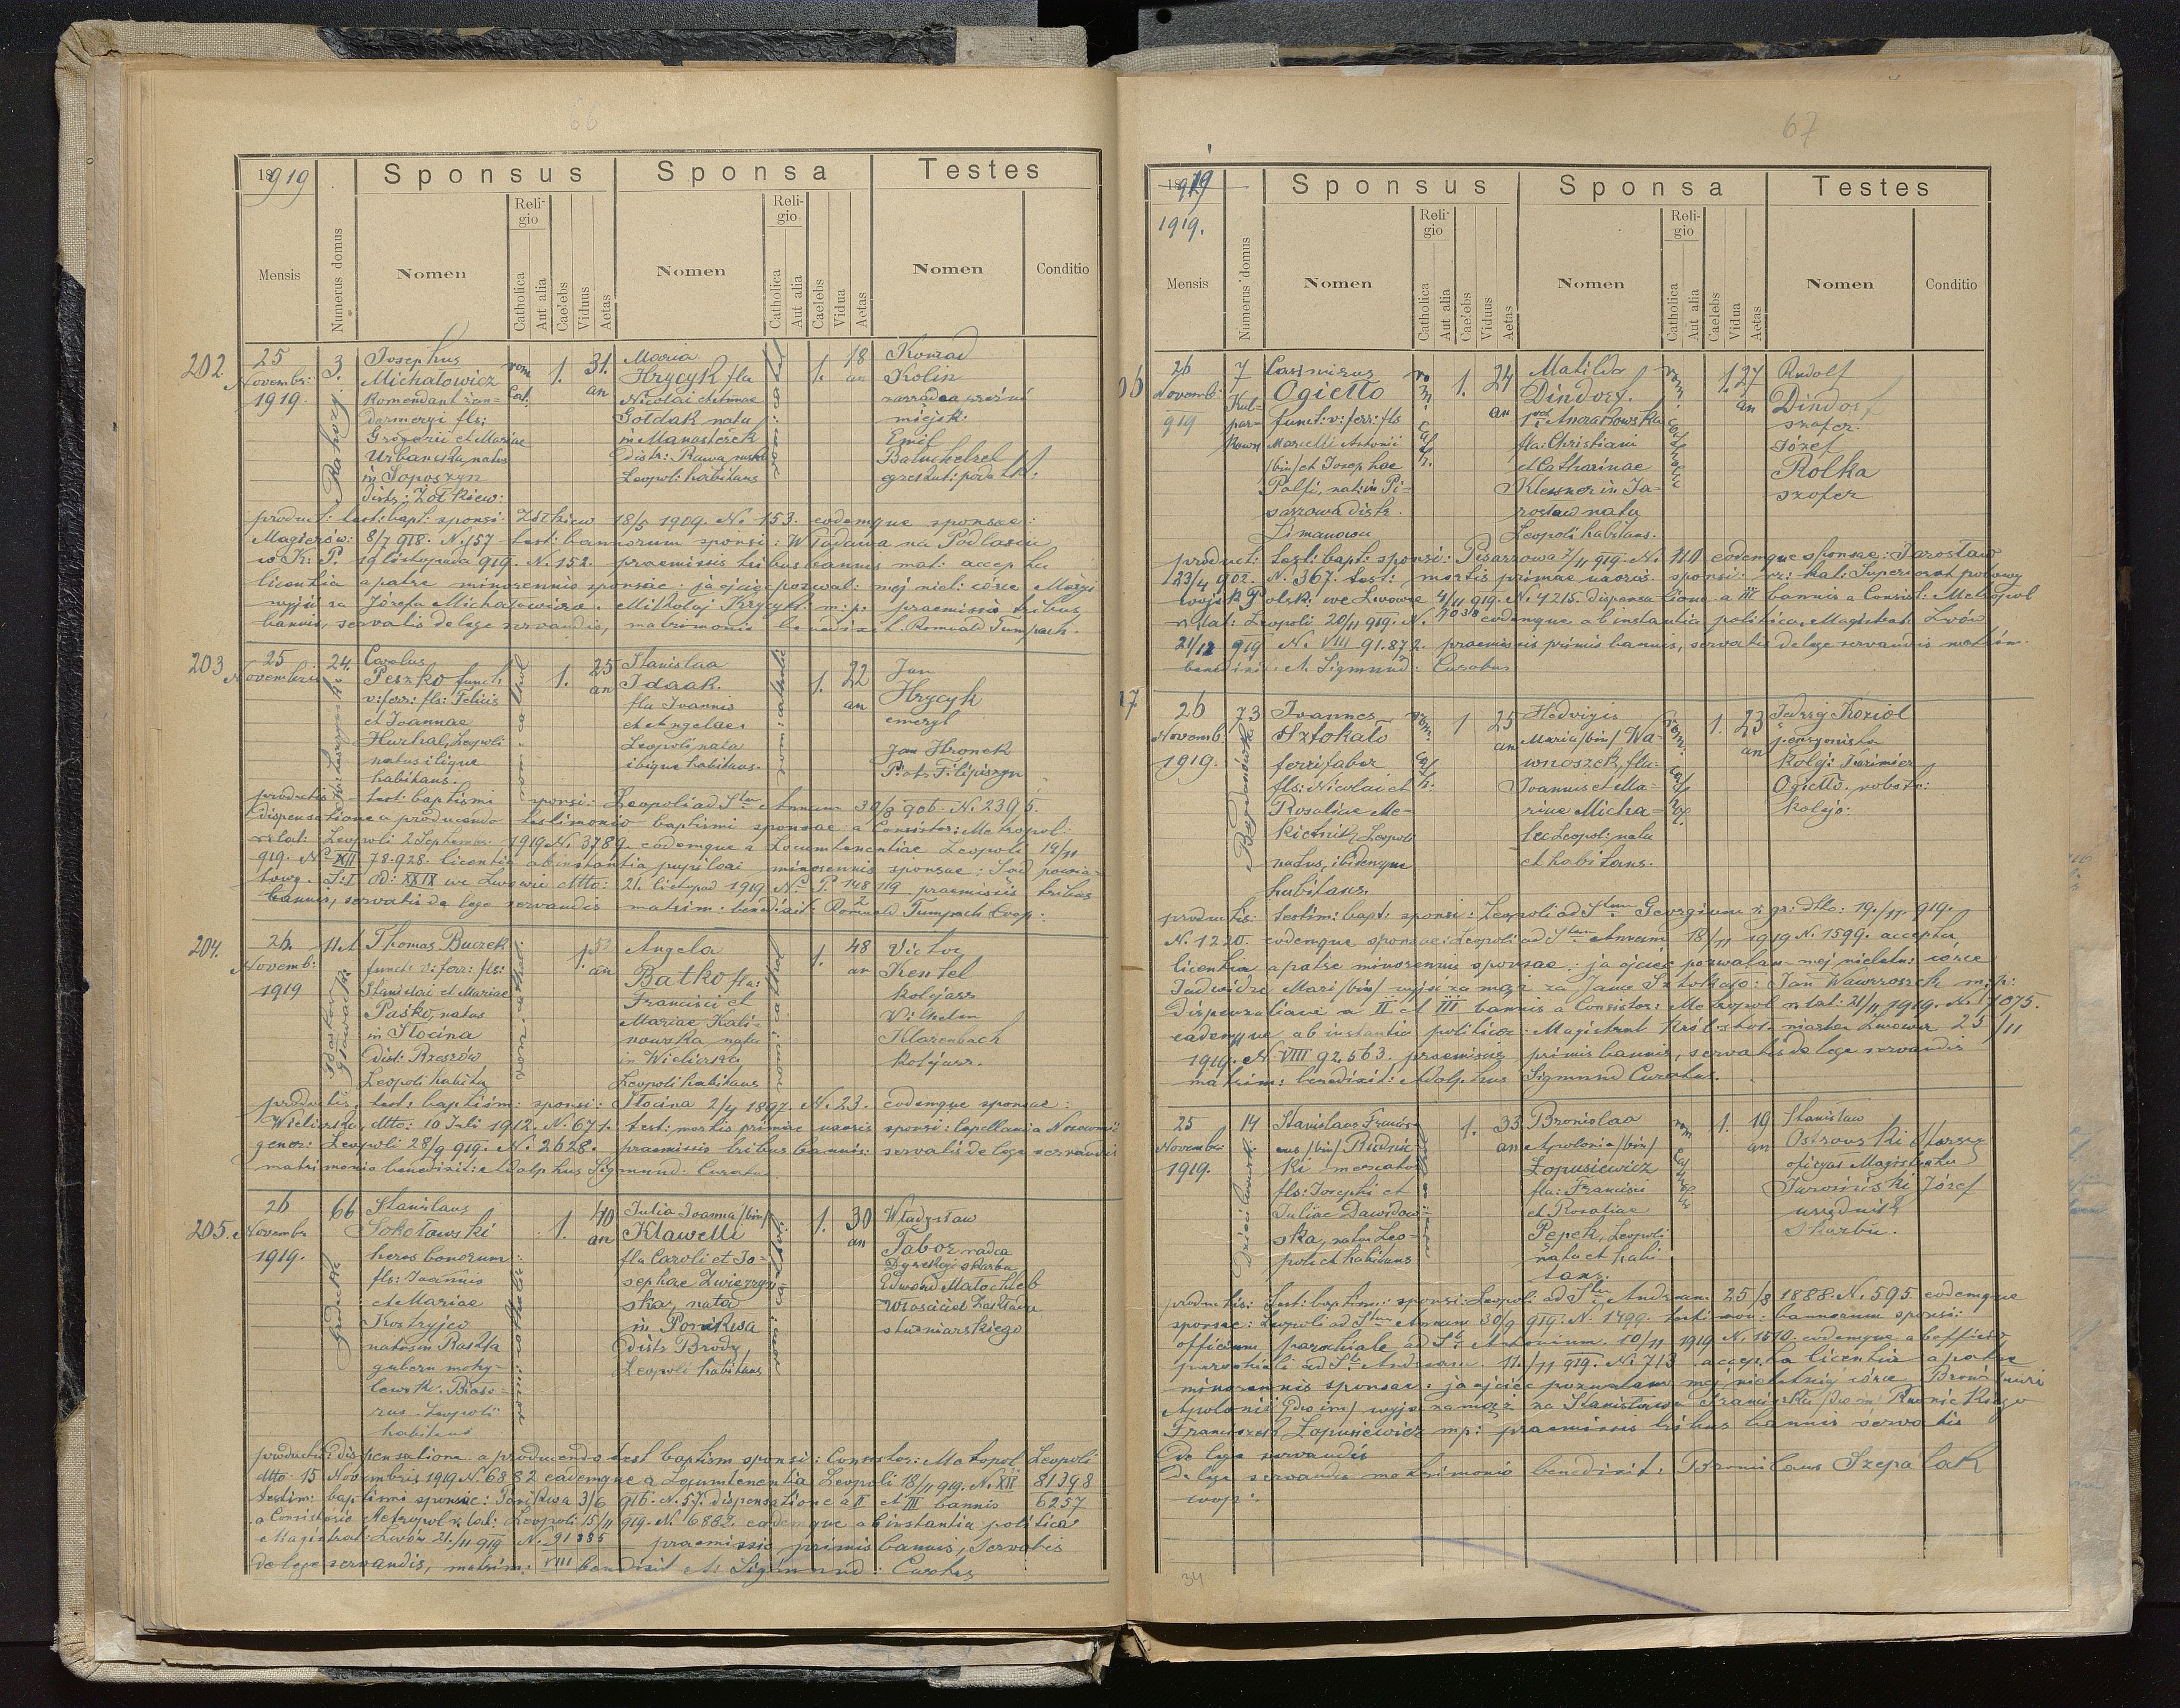 66
1919
Sponsus
Sponsa
Testes
Mensis
Numerus domus
Nomen
Religio
Catholica
Aut alia
Caelebs
Viduus
Aetas
Nomen
Religio
Catholica
Aut alia
Caelebs
Vidua
Aetas
Nomen
Conditio
202.
25
Novembr:
1919.
3.
Josephus
Michałowicz
Komendant żan=
darmeryi fls:
Gregorii et Mariae
Urbanska, natus
in Soposzyn
distr: Żółkiew:
rom
cat.
1.
31.
an
Maria
Hrycyk fla
Nicolai et Annae
Gołdak nata
in Manasterek
distr: Rawa ruska
Leopol: habitans
1.
18
an
Konrad
Kolin
miejsk.
Emil
product: test: bapt: sponsi: Żółkiew 18/5 1909. N. 153. eodemque sponsae:
Magierów: 8/7 918. N. 157 test: bannorum sponsi: Włodawa na Podlasiu
w K. P. 19 listopada 919. N. 152. praemissis tribus bannis mat: accepta
licentia a patre minorennis sponsae: ja ojciec pozwal: mej niel: córce Maryi
wyjść za Józefa Michałowicza. Mikołaj Hrycyk m:p: praemissis tribus
bannis, servatis de lege servandis, matrimonio benedixit. Romuald Tumpach.
203
25
Novembris
24.
Carolus
Peszko funct:
v: ferr: fls: Felicis
et Joannae
Huchal, Leopoli
natus ibique
habitans.
rom: cathol
1.
25
an
Stanislaa
Idaak.
fla Joannis
et Angelae
Leopoli nata
ibique habitans.
1.
22
an
Jan
Hrycyk
emeryt
Jan Hronek
Piotr Filipiszyn
productis test: baptismi sponsi: Leopoli ad Stam Annam 30/8 906. N. 2395.
dispensatione a producendo testimonio baptismi sponsae a Consistor: Metropol:
r: lat: Leopoli 2 Septembr: 1919 N. 3789 eodemque a Locumtenentiae Leopoli 14/11
919. No XII 78.928. licentia ab instantia pupilari minorennis sponsae: Sąd powia-
towy. S: I od: XXIX we Lwowie dtto: 21. listopad 1919 N. P. 148/19 praemissis tribus
bannis, servatis de lege servandis matrim: benedixit: Romuald Tumpach Coop:
204.
26.
Novemb:
1919
11 A
Thomas Buczek
funct: v: ferr: fls:
Stanislai et Mariae
Paśko, natus
in Słocina
dist: Rzeszów
Leopoli habita
1.
52
an
Angela
Batko fla:
Francisci et
Mariae Kali=
nowska nata
in Wieliczka
Leopoli habitans
1.
48
an
Victor
Kentel
kolejarz
Vilhelm
Klarenbach
kolejarz.
productis. test: baptism: sponsi: Słocina 2/4 1897. N. 23. eodemque sponsae:
Wieliczka, dtto: 10 Juli 1912. N. 671. test: mortis primae uxoris sponsi: capellania
gener: Leopoli 28/9 919. N. 2628. praemissis tribus bannis: servatis de lege servandis
matrimonio benedixit: Adolphus Sigmund: Curatus
205.
26
Novembr
1919.
66
Stanislaus
Sokołowski
heres bonorum
fls: Joannis
et Mariae
Kostryjco
gubern mohy-
lewsk.
rus. Leopoli
habitans
1.
40
an
Julia Joanna /bin/
Klawetti
fla Caroli et Jo-
sephae Zwierzyn-
ska, nata
in Ponikwa
distr Brody
Leopoli habitans
1.
30
an
Władysław
Tabor radca
Dyrekcji skarbu
Edward Matochleb
Właściciel Zakładu
stolarniarskiego
productis dispensatione a producendo test baptism sponsi: Consistor: Metropol Leopoli
dtto 15 Novembris 1919 N. 6882 eademque a Locumtenentia Leopoli 18/11 919. N. XII 81398
testim: baptismi sponsae: Ponikwa 3/6 916. N. 57. dispensatione a II et III bannis 6257
a Consistorio Metropol r. lat: Leopoli 15/11 919. N. 6882. eademque ab instantia politica
Magistrat: Lwów 21./11 919 N. 91385 VIII praemissis primis bannis, servatis
de lege servandis, matrim: benedixit A Sigmund: Curatus
67
1919
1919.
Sponsus
Sponsa
Testes
Mensis
Numerus domus
Nomen
Religio
Catholica
Aut alia
Caelebs
Viduus
Aetas
Nomen
Religio
Catholica
Aut alia
Caelebs
Vidua
Aetas
Nomen
Conditio
06
26
Novemb:
919
7
Kul-
par-
kows
Casimirus
Ogietto
funct: v: ferr: fls
Marcelli Antonii
/bin/ et Josephae
Palfi, nat: in Pi=
sarzowa distr.
Limanowa
1.
24
an
Matilda
Dindorf.
fla: Christiani
et Catharinae
Klessner in Ja-
rosław nata
Leopoli habitans.
1.
27
an
Rudolf
Dindorf
szofer.
Józef
Rolka
szofer
product: test: bapt: sponsi: Pisarzowa 7/11 919. N. 110 eodemque sponsae: Jarosław
23/4 902. N. 367. test: mortis primae uxoris sponsi: rz: kat: Superiorat polowy
wojsk Polsk: we Lwowie 4/11 919. N. 4215. dispensatione a III bannis a Consist: Metropol
r: lat: Leopoli 20/11 919. N. 7038 eodemque ab instantia politica, Magistrat Lwów
21/12 919 N. VIII 91.872. praemissis primis bannis, servatis de lege servandis matrim.
benedixit. A Sigmund: Curatus
17
26
Novemb:
1919.
73
Bogdanówka
Joannes
Sztokało
ferrifaber
fls: Nicolai et
Rosaliae Me-
kietniuk, Leopoli
natus, ibidemque
habitans.
1
25
an
Hedvigis
Maria /bin/ Wa-
wnoszek, fla:
Joannis et Ma-
riae Micha-
lec Leopol: nata
et habitans.
1.
23
an
Jędrzej Kozioł
pensyonista
kolej: Kazimierz
Ogietto. robotn:
kolejo:
productis: testim: bapt: sponsi: Leopoli ad Stum Georgium r: gr: dtto: 19./11. 919.
N. 1220. eodemque sponsae: Leopoli ad Stam Annam 18/11 1919 N. 1599. accepta
licentia a patre minorennis sponsae: ja ojciec pozwalam mej nieletn: córce
Jadwidze Mari /bin/ wyjść za mąż za Jana Sztokało: Jan Wawrzoszek m:p:
Dispensatione a II et III bannis a Consistor: Metropol r: lat: 21/11 1919. N. 7075.
eademque ab instantia politica: Magistrat Król: stoł. miasta Lwowa 25/11
1919. N. VIII 92.563. praemissis primis bannis, servatis de lege servandis
matrim: benedixit: Adolphus Sigmund Curatus.
25
November
1919.
14
Stanislaus Francis-
cus /bin/ Rudnic
ki mercator
fls: Josephi et
Juliae Dawidow-
ska, natus Leo-
poli et habitans
1.
33
an
Bronislaa
Apolonia /bin/
Łopusiewicz
fla: Francisci
et Rosaliae
Pepek, Leopoli
nata et habi
tans.
1.
19
an
Stanisław
Ostrowski Starszy
oficyał Magistratu
Jurosiński Józef
urzędnik
skarbu.
productis: test: baptism: sponsi: Leopoli ad Stum Andream 25/8 1888. N. 595 eodemque
sponsae: Leopoli ad Stam Annam 30/9 919. N. 1499. testimon: bannorum sponsi:
officium parochiale ad St. Antonium. 10/11 1919 N. 1570. eodemque ab officio
parochiali ad St. Andream 11./11 919. N. 713 accepta licentia a patre
minorennis sponsae: ja ojciec pozwalam mej nieletniej córce
Apolonii /dwoim/ wyjść za mąż za Stanisława Franciszka
Franciszek Łopusiewicz mp: praemissis tribus bannis servatis
de lege servandis
de lege servandis matrimonio benedixit: Bronislaus Szepalak
coop:
34